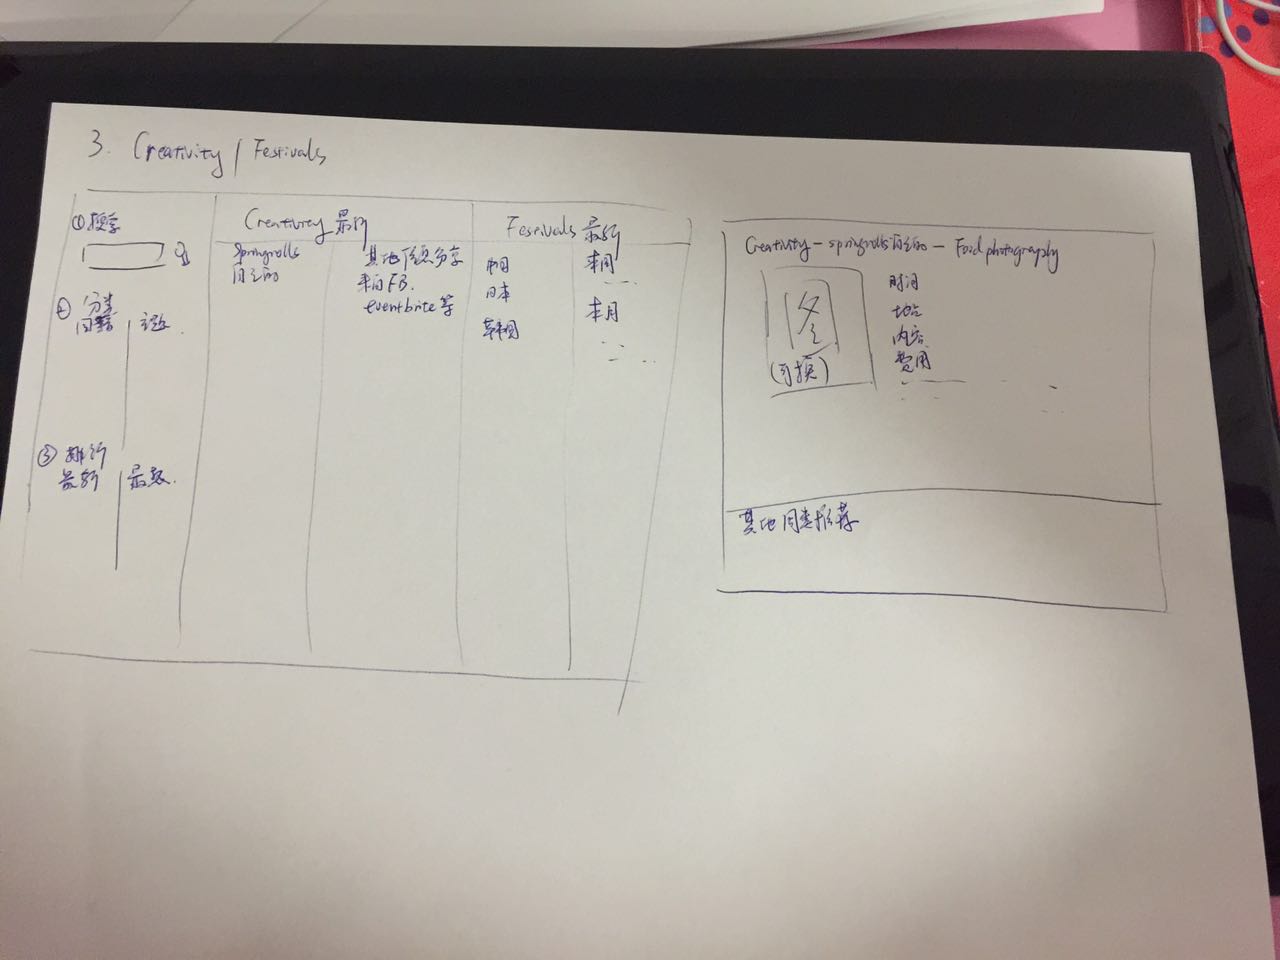 3. Creativity / Festivals
①搜索
② 分类
国籍 主题
③ 排行
最新 最热
Creativity 最新
Springrolls
自己的
其他信息分享
来自FB.
eventbrite 等
Festivals 最新
中国
日本
韩国
本周
本月
Creativity - springrolls自己的 - Food photography
(可换)
时间
地点
内容
费用
其他同类推荐